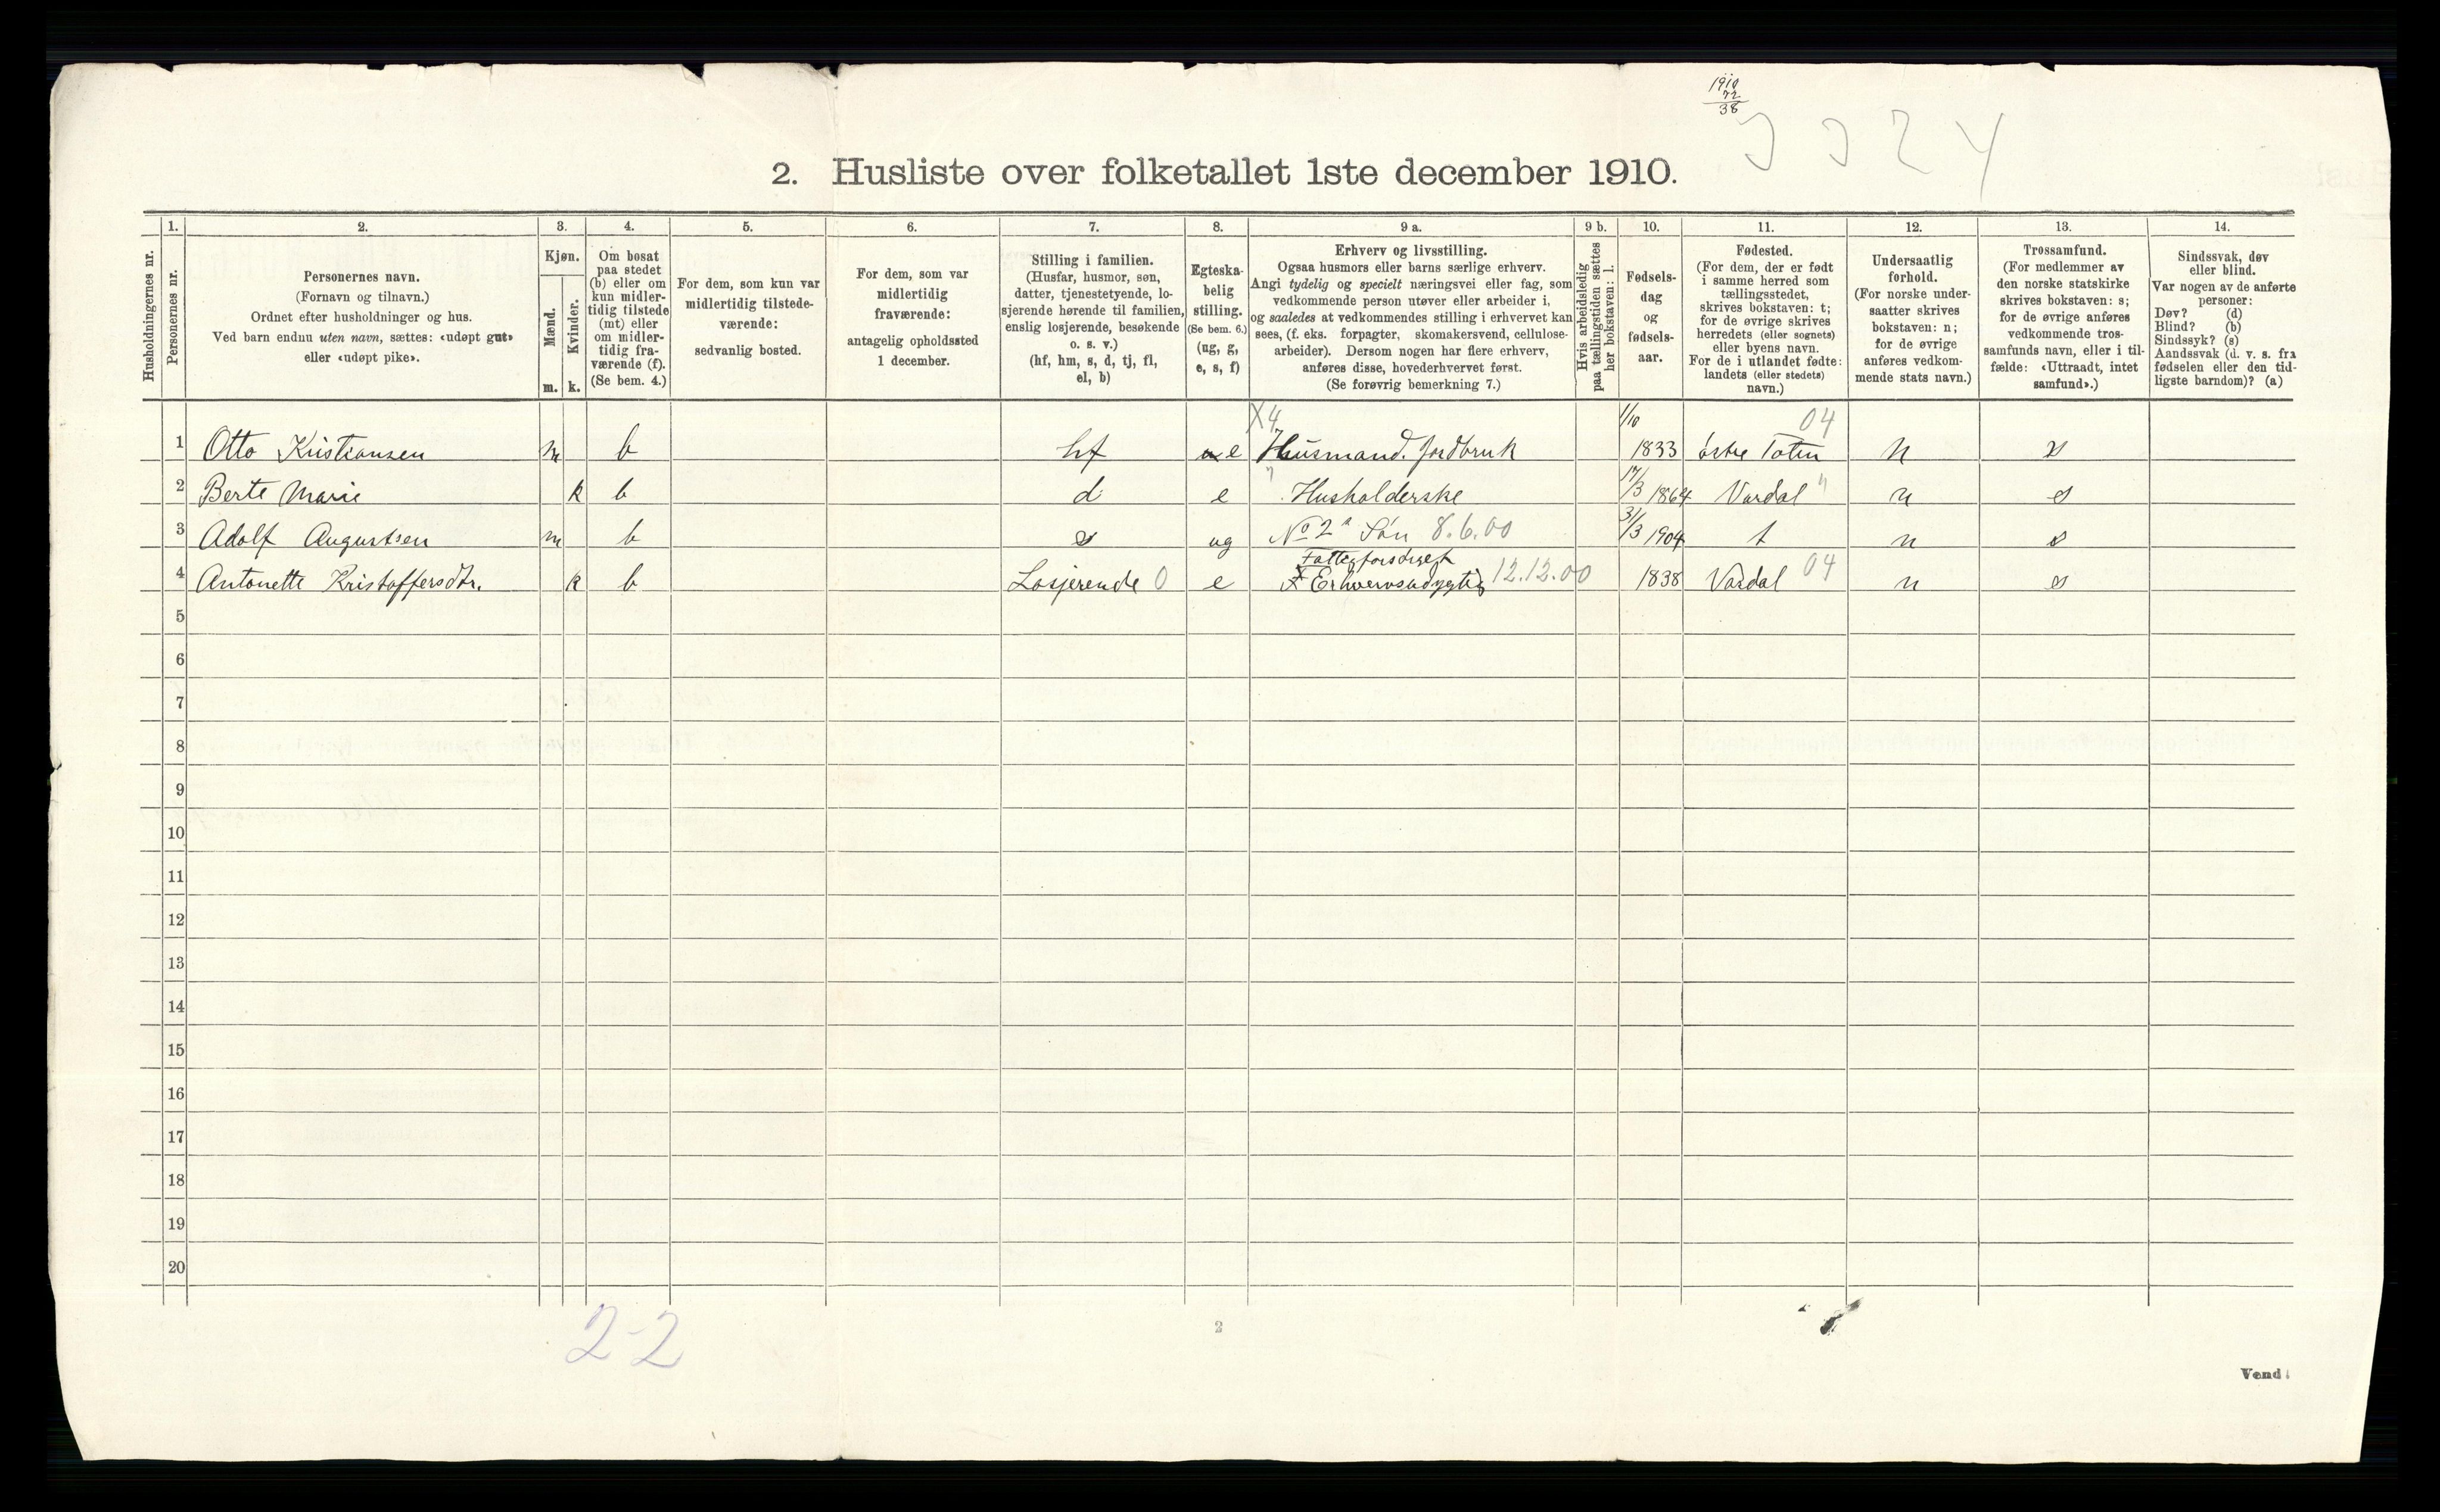 1910
72
38
3 3 2 4
2. Husliste over folketallet 1ste december 1910.
Husholdningernes nr.
1.
Personernes nr.
2.
Personernes navn.
(Fornavn og tilnavn.)
Ordnet efter husholdninger og hus.
Ved barn endnu uten navn, sættes: «udøpt gut»
eller «udøpt pike».
3.
Kjøn.
Mænd.
m.
Kvinder.
k.
4.
Om bosat
paa stedet
(b) eller om
kun midler-
tidig tilstede
(mt) eller
om midler-
tidig fra-
værende (f).
(Se bem. 4.)
5.
For dem, som kun var
midlertidig tilstede-
værende:
sedvanlig bosted.
6.
For dem, som var
midlertidig
fraværende:
antagelig opholdssted
1 december.
7.
Stilling i familien.
(Husfar, husmor, søn,
datter, tjenestetyende, lo-
sjerende hørende til familien,
enslig losjerende, besøkende
o. s. v.)
(hf, hm, s, d, tj, fl,
el, b)
8.
Egteska-
belig
stilling.
(Se bem. 6.)
(ug, g,
e, s, f)
9 a.
Erhverv og livsstilling.
Ogsaa husmors eller barns særlige erhverv.
Angi tydelig og specielt næringsvei eller fag, som
vedkommende person utøver eller arbeider i,
og saaledes at vedkommendes stilling i erhvervet kan
sees, (f. eks. forpagter, skomakersvend, cellulose-
arbeider). Dersom nogen har flere erhverv,
anføres disse, hovederhvervet først.
(Se forøvrig bemerkning 7.)
9 b.
Hvis arbeidsledig
paa tællingstiden sættes
her bokstaven: l.
10.
Fødsels-
dag
og
fødsels-
aar.
11.
Fødested.
(For dem, der er født
i samme herred som
tællingsstedet,
skrives bokstaven: t;
for de øvrige skrives
herredets (eller sognets)
eller byens navn.
For de i utlandet fødte:
landets (eller stedets)
navn.)
12.
Undersaatlig
forhold.
(For norske under-
saatter skrives
bokstaven: n;
for de øvrige
anføres vedkom-
mende stats navn.)
13.
Trossamfund.
(For medlemmer av
den norske statskirke
skrives bokstaven: s;
for de øvrige anføres
vedkommende tros-
samfunds navn, eller i til-
fælde: «Uttraadt, intet
samfund».)
14.
Sindssvak, døv
eller blind.
Var nogen av de anførte
personer:
Døv? (d)
Blind? (b)
Sindssyk? (s)
Aandssvak (d. v. s. fra
fødselen eller den tid-
ligste barndom)? (a)
X4 1/10 04
1 Otto Kristiansen m b hf e Husmand. Jordbruk 1833 östre Toten n s
2 Berte Marie k b d e " Husholderske 17/3 1864 Vardal " n s
3 Adolf Augustsen m b s ug No 2s Søn 8.6.00 31/3 1904 t n s
Fattigforsørget
4 Antonette Kristoffersdtr. k b Losjerende 0 e X Erhvervsudygtig 12.12.00 1838 Vardal 04 n s
5
6
7
8
9
10
11
12
13
14
15
16
17
18
19
20
2-2
2
Vend!